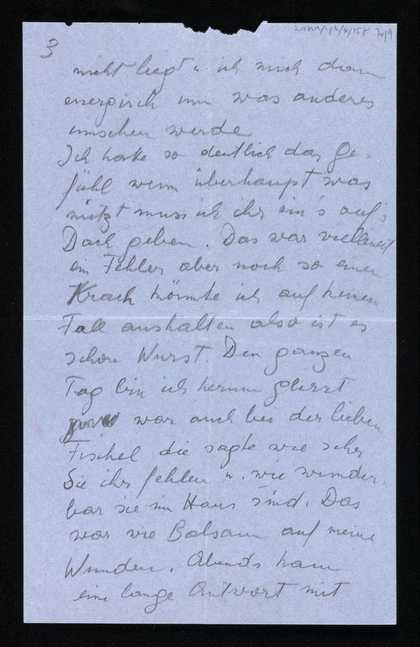 3
nicht liegt u. ich mich dran
energisch um was anderes
umsehen werde
Ich hatte so deutlich das Ge-
fühl wenn überhaupt was
nützt muss ich ihr ein's auf's
Dach geben. Das war vielleicht
ein Fehler aber noch so einen
Krach könnte ich auf keinen
Fall aushalten also ist es
schon Wurst. Den ganzen
Tag bin ich herum geirrt
war auch bei der lieben
Fischel die sagte wie sehr
Sie ihr fehlen u. wie wunder-
bar sie im Haus sind. Das
war wie Balsam auf meine
Wunden. Abends kam
eine lange Antwort mit